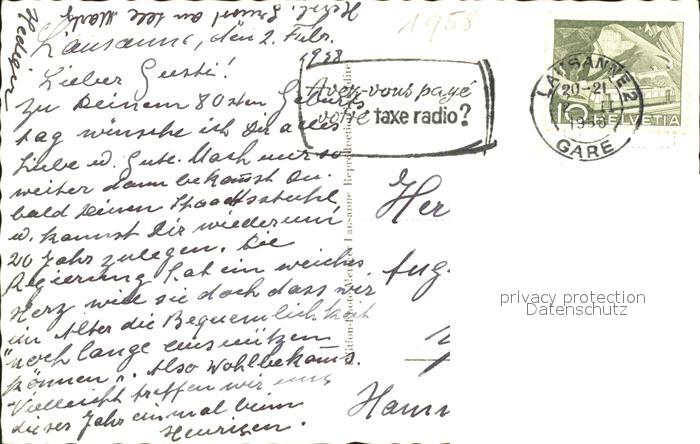 Herzl. Gruss an alle
Hedwig
1958
Lausanne, den 2. Febr.
1958
Lieber Gusti!
Zu Deinem 80sten Geburts
tag wünsche ich Dir alles
Liebe u. Gute. Mach nur so
weiter dann bekommst Du
bald Deinen Staatsstuhl
u. kannst Dir wiederum
20 Jahr zulegen. Die
Regierung hat ein weiches
Herz will sie doch dass wir
im Alter die Bequemlichkeit
"noch lange ausnützen
können". Also Wohlbekoms.
Vielleicht treffen wir uns
dieses Jahr einmal beim
Heurigen.
Avez-vous payé
votre taxe radio?
LAUSANNE 2
20-21
GARE
HELVETIA
Lausanne Reproduction interdite
Her
Aug.
Hann
privacy protection
Datenschutz